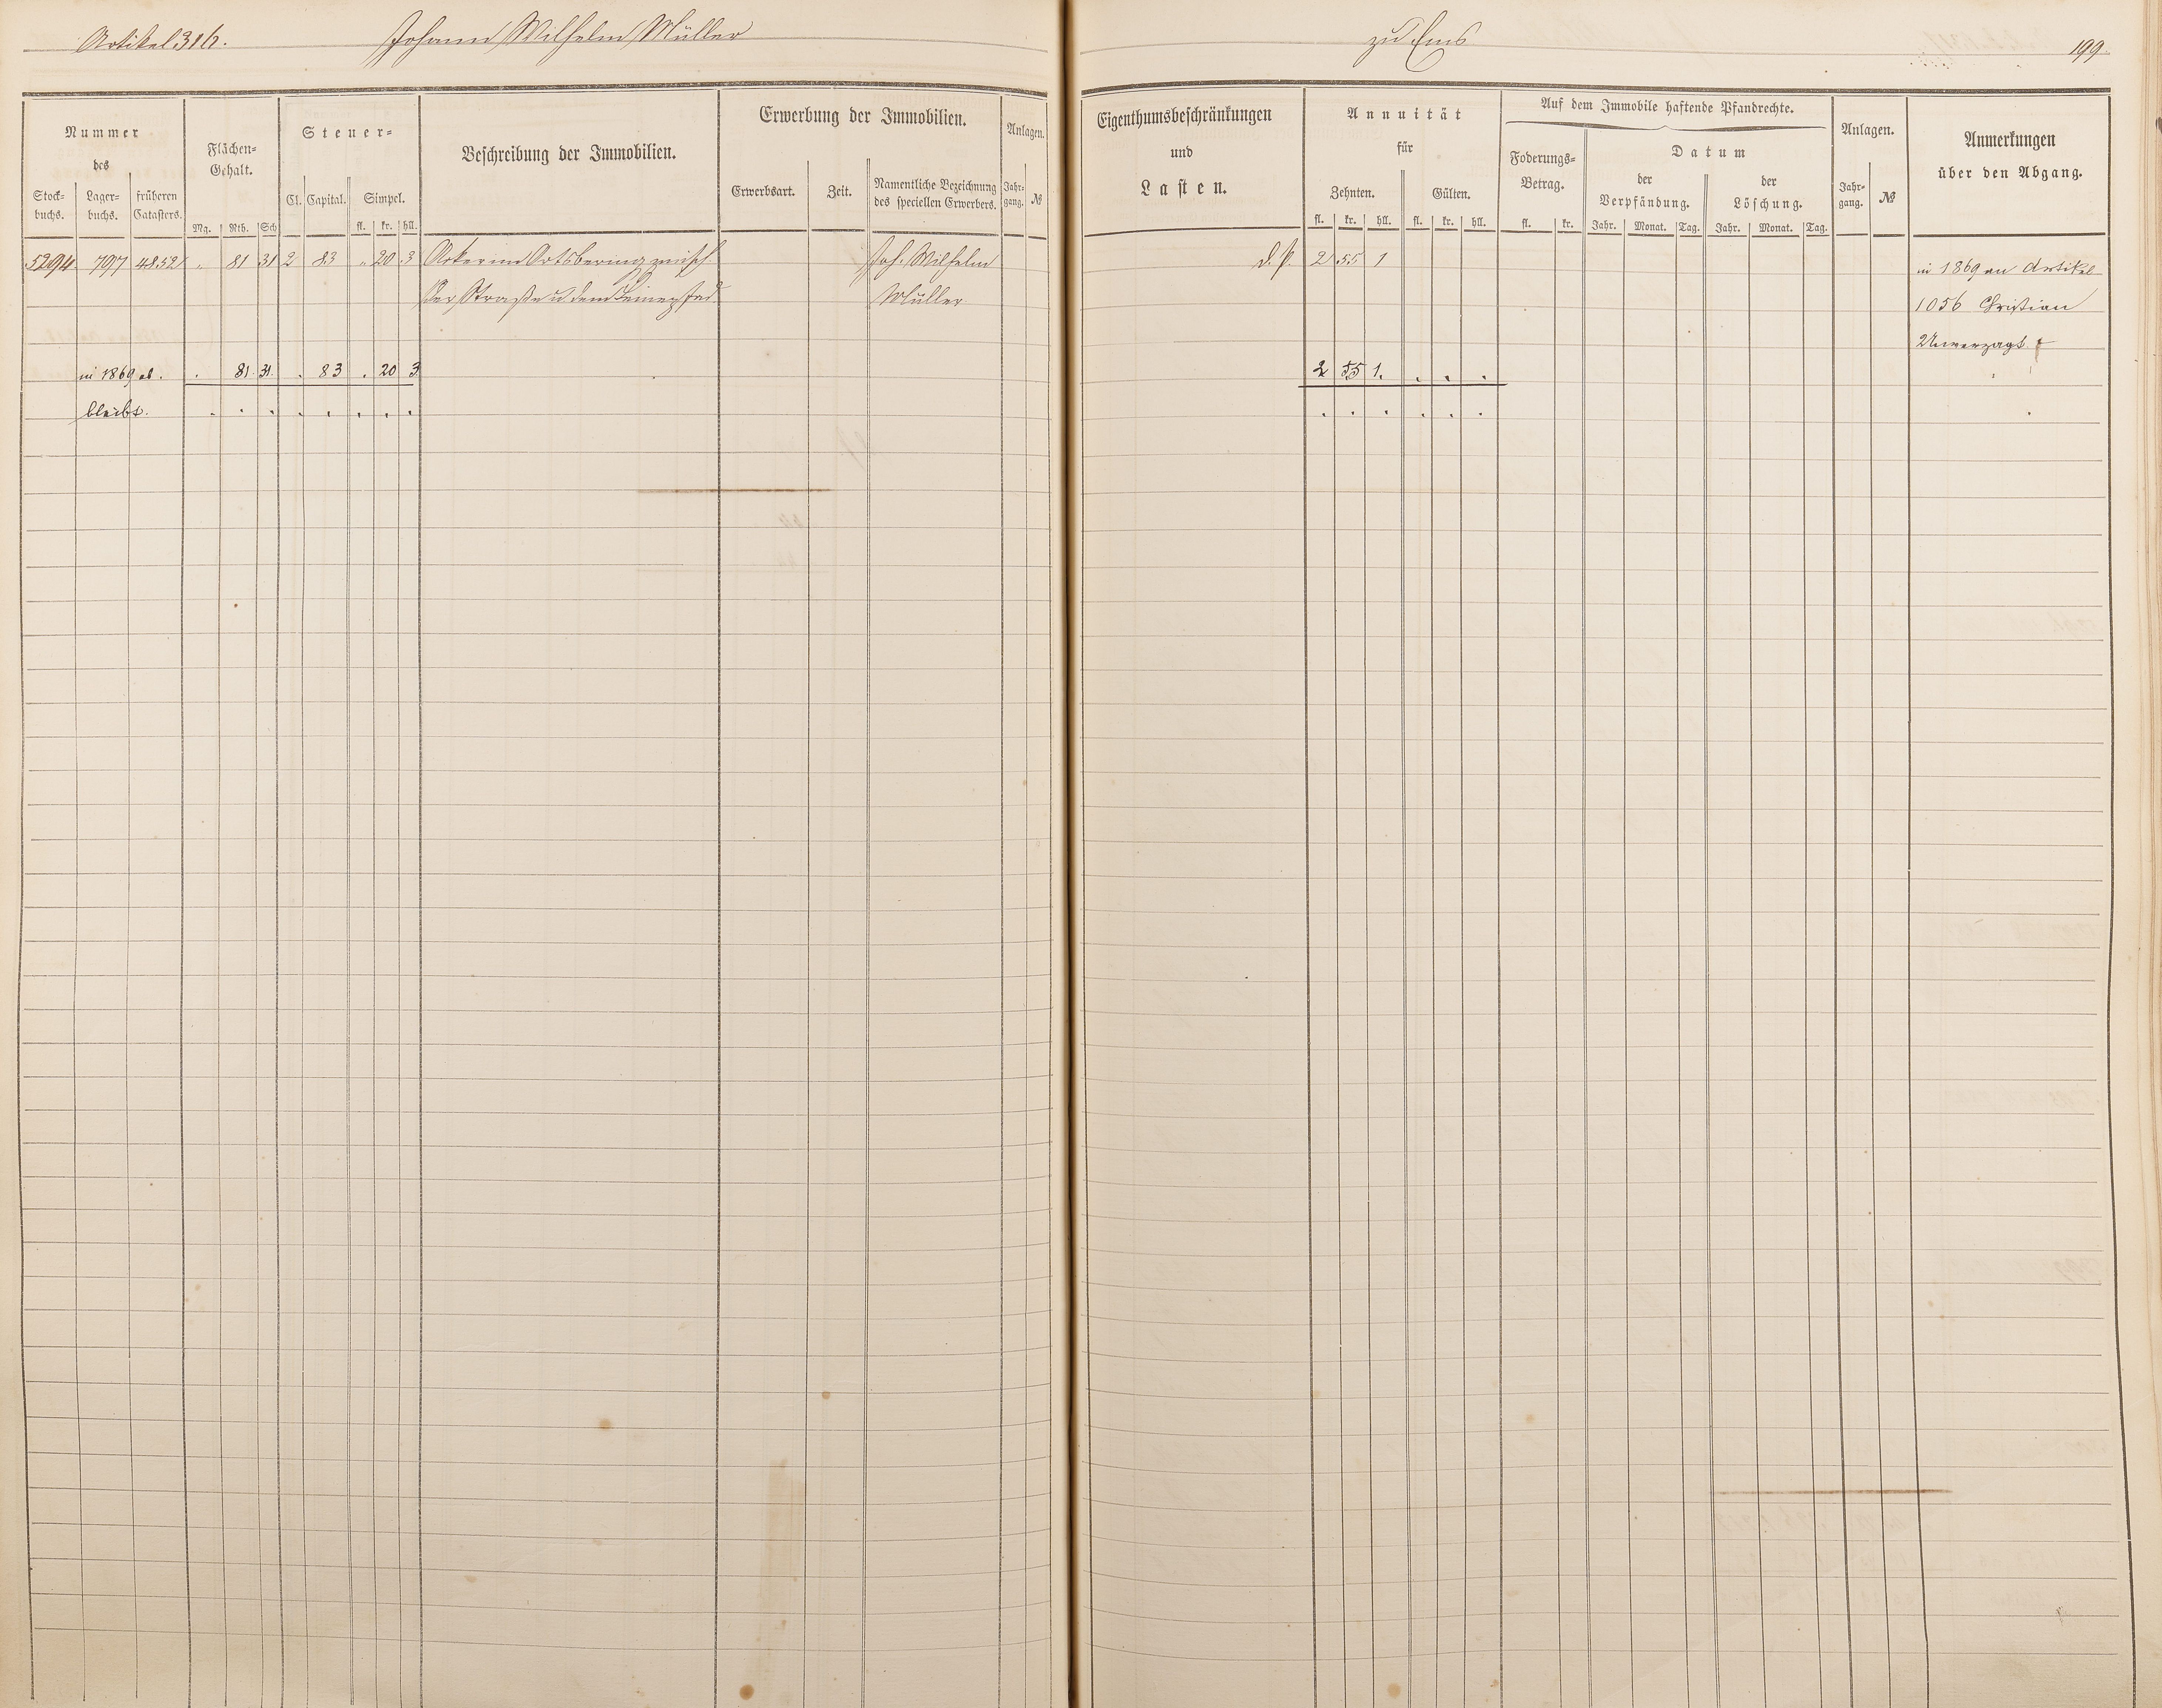 Artikel 316. Johann Wilhelm Müller zu Ems 199.
Nummer
des
Stock-
buchs.
Lager-
buchs.
früheren
Catasters.
Flächen-
Gehalt.
Mg. Rth. Sch
Steuer-
Cl. Capital. Simpel.
fl. kr. hll.
Beschreibung der Immobilien.
Erwerbung der Immobilien.
Erwerbsart. Zeit.
Namentliche Bezeichnung
des speciellen Erwerbers.
Anlagen.
Jahr-
gang.
№
Eigenthumsbeschränkungen
und
Lasten.
Annuität
für
Zehnten. Gülten.
fl. kr. hll. fl. kr. hll.
Auf dem Immobile haftende Pfandrechte.
Foderungs-
Betrag.
fl. kr.
Datum
der
Verpfändung.
Jahr. Monat. Tag.
der
Löschung.
Jahr. Monat. Tag.
Anlagen.
Jahr-
gang.
№
Anmerkungen
über den Abgang.
5294. 797 4852 . 81 31 2 83 . 20 3 Acker im Ortsbering zwisch. Joh. Wilhelm d. P. 2 55 1 in 1869 an Artikel
der Straße u dem Müller 1056 Christian
Unverzagt
in 1869 ab. . 81. 31. . 83 . 20 3 2 55 1. . . .
bleibt. . . . . . . . . . . . . . .